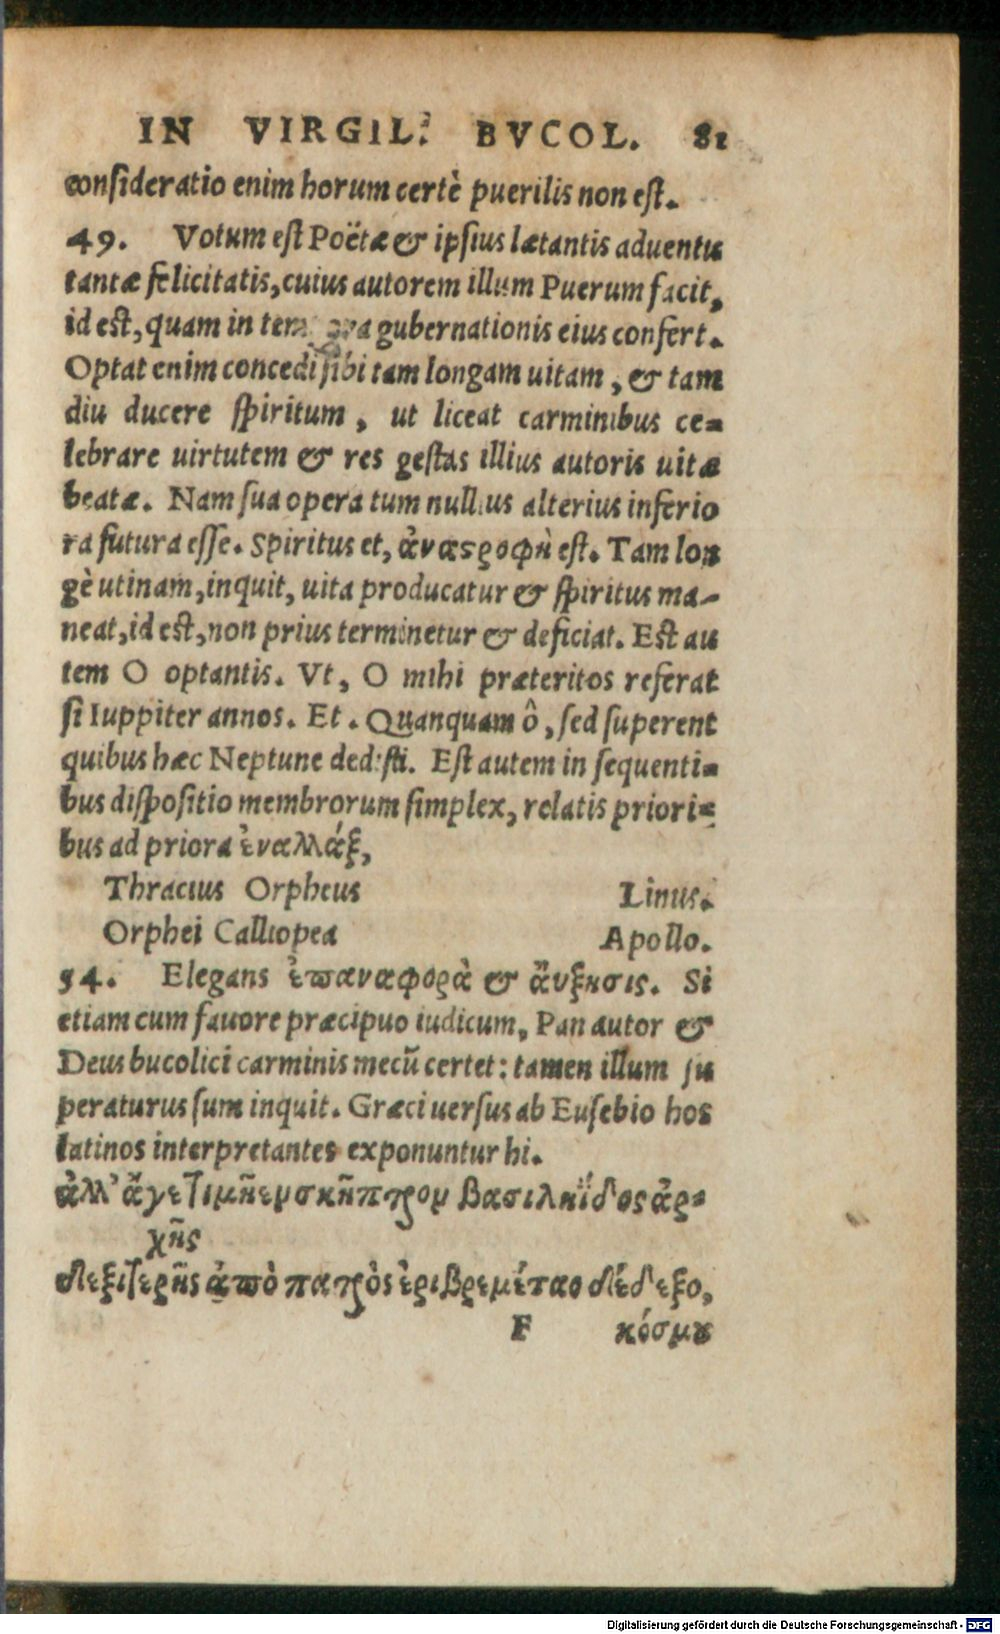 IN VIRGIL. BVCOL. 81
consideratio enim horum certè puerilis non est.
49. Votum est Poëtæ & ipsius lætantis aduentu
tantæ felicitatis, cuius autorem illum Puerum facit,
id est, quam in tempora gubernationis eius confert.
Optat enim concedi sibi tam longam uitam, & tam
diu ducere spiritum, ut liceat carminibus ce=
lebrare uirtutem & res gestas illius autoris uitæ
beatæ. Nam sua opera tum nullius alterius inferio
ra futura esse. Spiritus et, ἀναστροφὴ est. Tam lon
gè utinam, inquit, uita producatur & spiritus ma-
neat, id est, non prius terminetur & deficiat. Est au
tem O optantis. Vt, O mihi præteritos referat
si Iuppiter annos. Et. Quanquam ô, sed superent
quibus hæc Neptune dedisti. Est autem in sequenti=
bus dispositio membrorum simplex, relatis priori=
bus ad priora ἐναλλάξ,
Thracius Orpheus Linus.
Orphei Calliopea Apollo.
54. Elegans ἐπαναφορὰ & ἄυξησις. Si
etiam cum fauore præcipuo iudicum, Pan autor &
Deus bucolici carminis mecū certet: tamen illum su
peraturus sum inquit. Græci uersus ab Eusebio hos
latinos interpretantes exponuntur hi.
ἀλλ' ἄγε τιμῆεν σκῆπτρον βασιληΐδος ἀρ=
χῆς
δεξιτερῆς ἀπὸ πατρὸς ἐριβρεμέταο δέδεξο,
F κόσμου
Digitalisierung gefördert durch die Deutsche Forschungsgemeinschaft - DFG